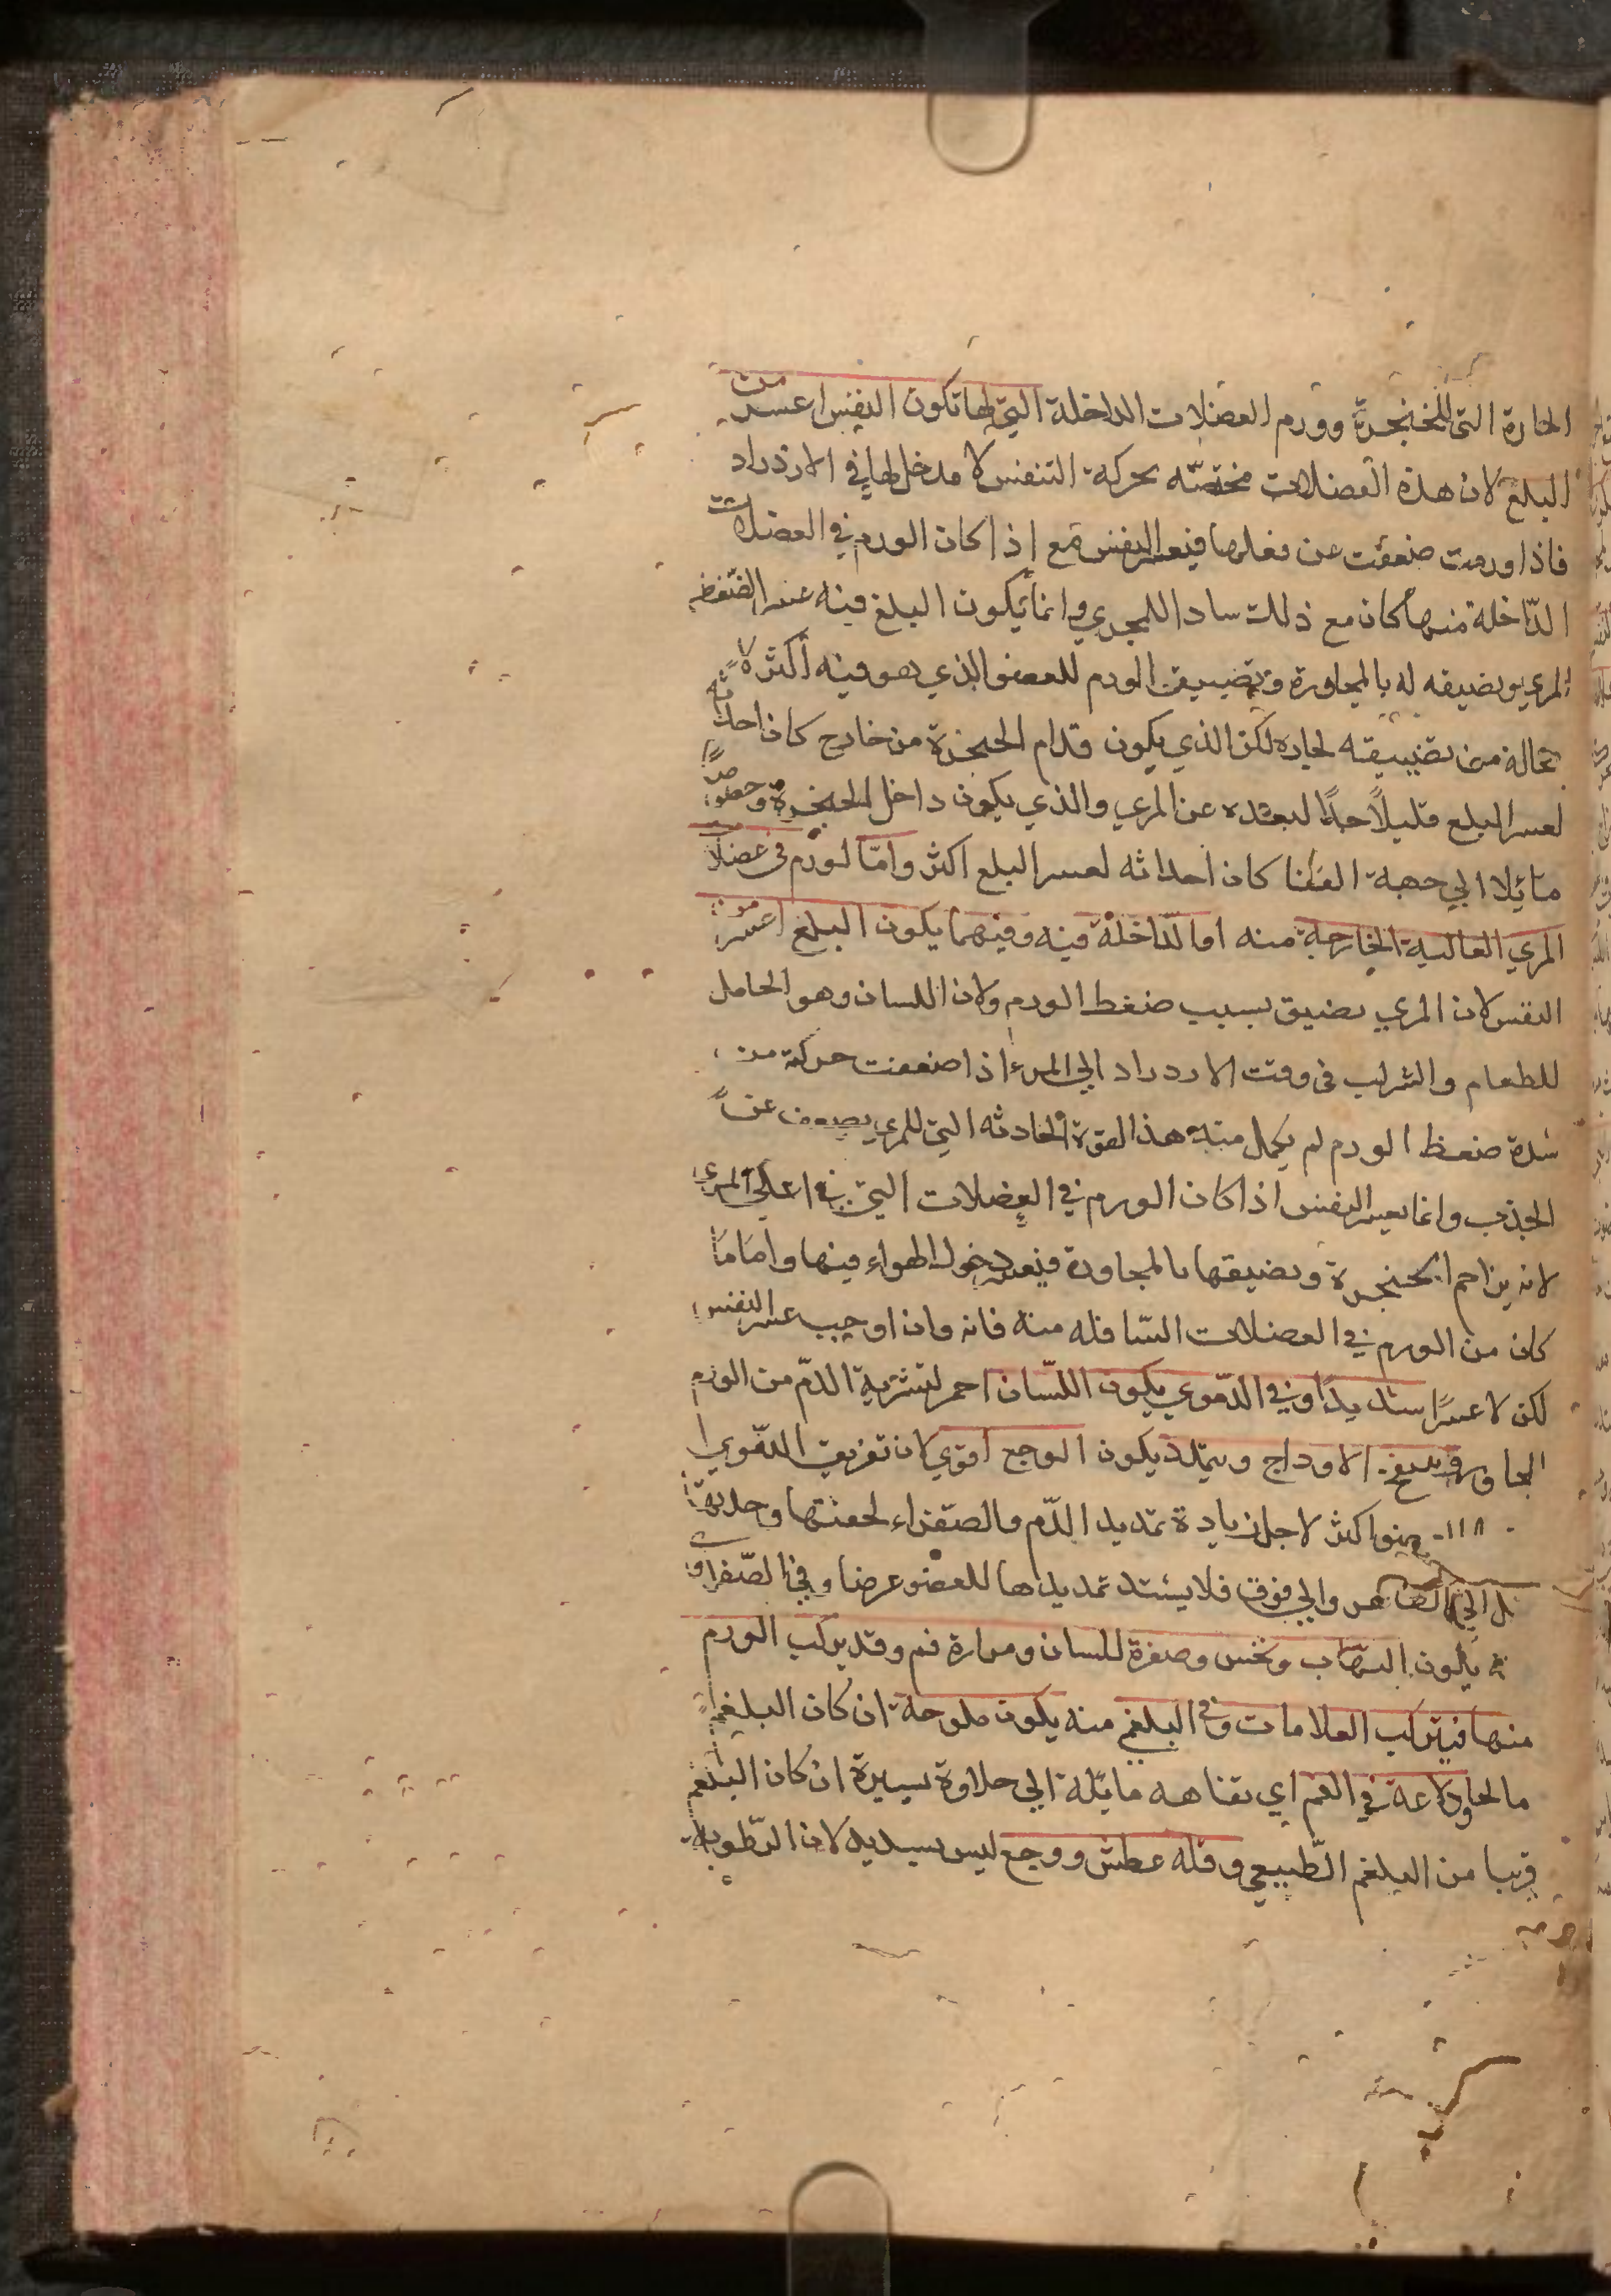 الحارة التى للحنجرة وورم العضلات الداخلة التي لها تكون النفس اعسر من
البلع لان هذه العضلات مختصّه بحركة التنفس لا مدخل لها في الازدراد
فاذا ورمت ضعفت عن فعلها فيعسر النفس مع اذا كان الورم في العضلات
الدّاخلة منها كان مع ذلك سادا للمجري وانما يكون البلغ فيه عسر الضغط
المري وبضيقه له بالمجاورة وتضييق الورم للعضو الذي هو فيه أكثر لا
محالة من تضييقه لجاره لكن الذي يكون قدام الحنجرة من خارج كان احداثه
لعسر البلع قليلاً جدًا لبعده عن المري والذي يكون داخل الحنجرة وخصوصًا
مائلا الي جهة القفا كان احداثه لعسر البلع اكثر وامّا لورم فى عضلا
المري العالية الخارجة منه او الدّاخلة فيه وفيهما يكون البلع اعسر من
النفس لان المري يضيق بسبب ضغط الورم ولان اللسان وهو الحامل
للطعام والشراب فى وقت الازدراد الي المرء اذا ضعفت حركته من
شدة ضغط الورم لم يكمل منه هذا القوة الجاذبه التي للمري يضعف عن
الجذب وانما يعسر النفس اذا كان الورم في العضلات التي في اعلي المري
لانه يزاحم الحنجرة ويضيقها بالمجاورة فيعسر دخول الهواء فيها واما ما
كان من الورم في العضلات السّافله منه فانه وان اوجب عسر النفس
لكن لا عسرًا شديدًا وفي الدّموي يكون اللّسان احمر لتشربه الدّم من الورم
المجاور وينتفخ الاوداج ويتمدد يكون الوجع اقوي لان تفريق الدّموي
١١٨ عضو اكثر لاجل زيادة تمديد الدّم والصّفراء لخفتها وحدتها
ل الي الظاهر والي فوق فلا يشتد تمديدها للعضو عرضا وفي الصّفراوي
يكون التهاب ونخس وصفرة للسان ومرارة فم وقد يركب الورم
منها فيتركب العلامات وفى البلغمي منه يكون ملوحة ان كان البلغم
مالحا ودلاعة في الفم اي تفاهه مايله الي حلاوة يسيرة ان كان البلغم
قريبا من البلغم الطّبيعي وقله عطش ووجع ليس بشديد لان الرّطوبه